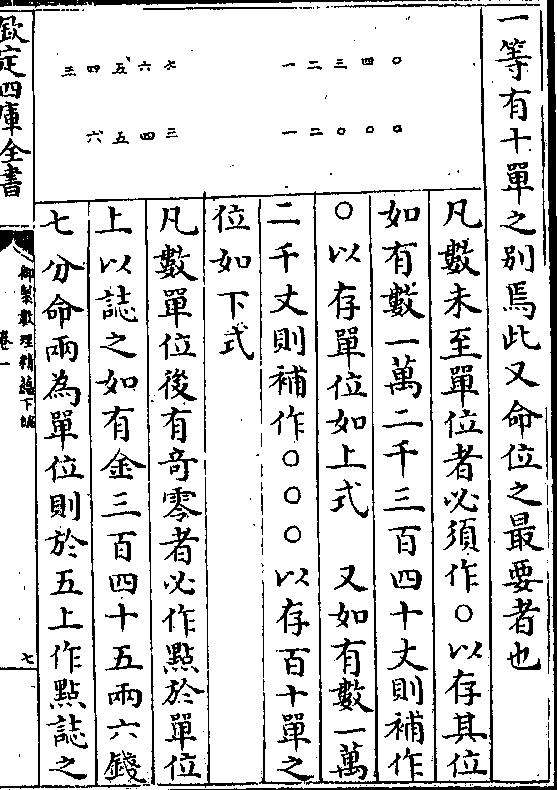 一等有十單之别焉此又命位之最要者也
凡數未至單位者必須作○以存其位
如有數一萬二千三百四十丈則補作
○以存單位如上式　又如有數一萬
二千丈則補作○○○以存百十單之
位如下式
凡數單位後有竒零者必作點於單位
上以誌之如有金三百四十五兩六錢
七分命兩為單位則於五上作點誌之
一二三四○
一二○○○
三四五六七
六五四三
欽定四庫全書
御製數理精蘊下編
卷一
七